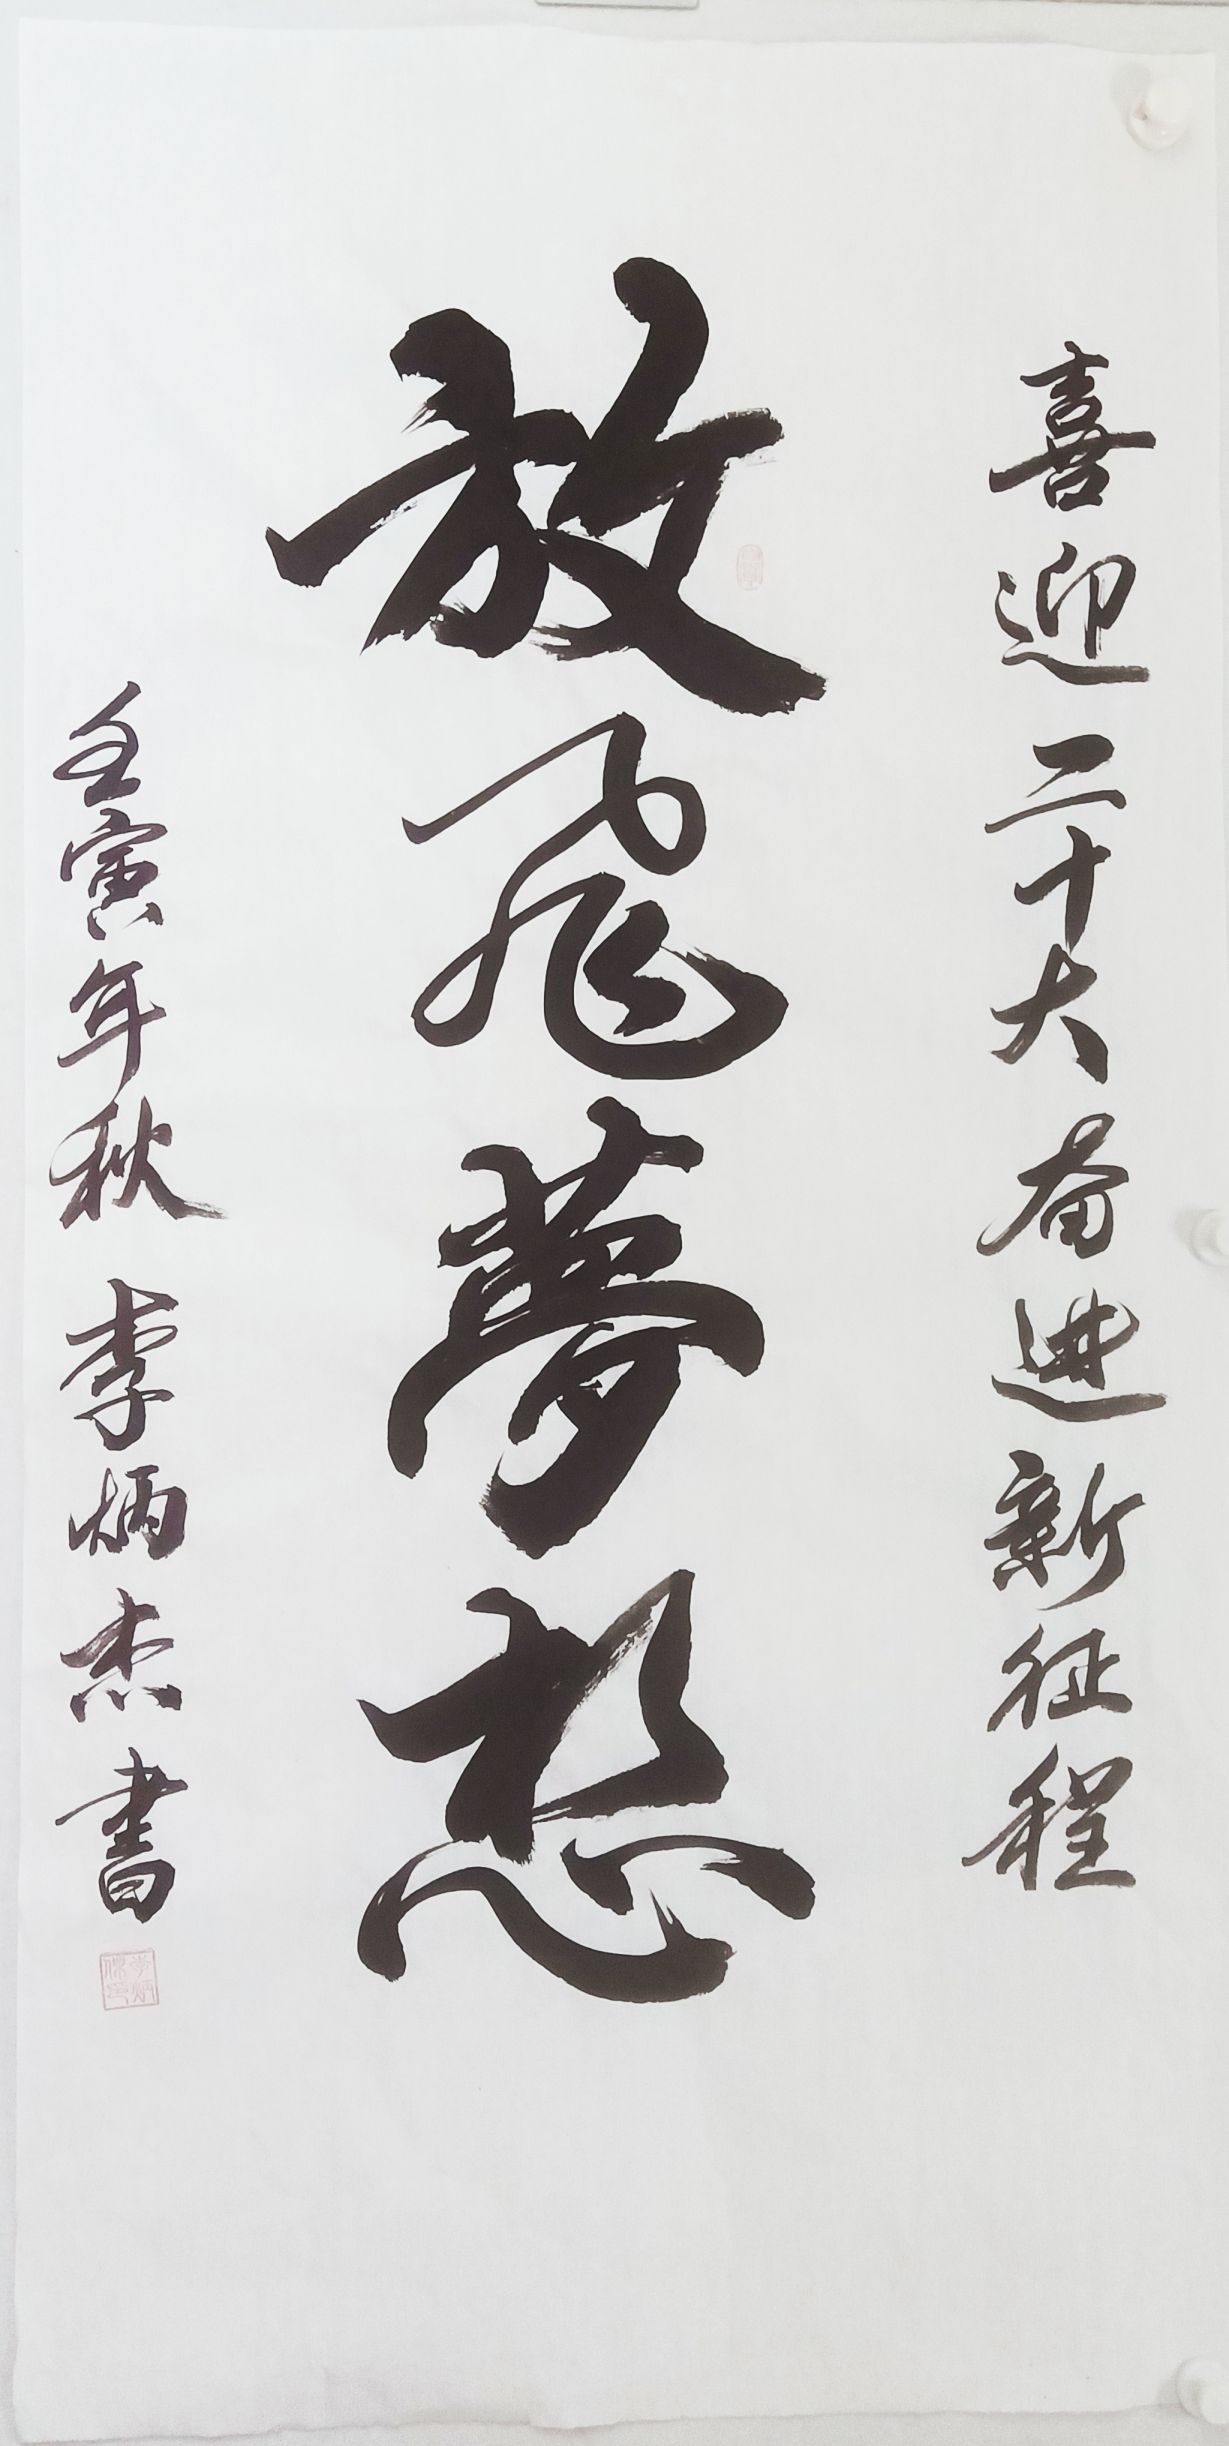 喜迎二十大奋进新征程
放飛夢想
壬寅年秋 李炳杰書